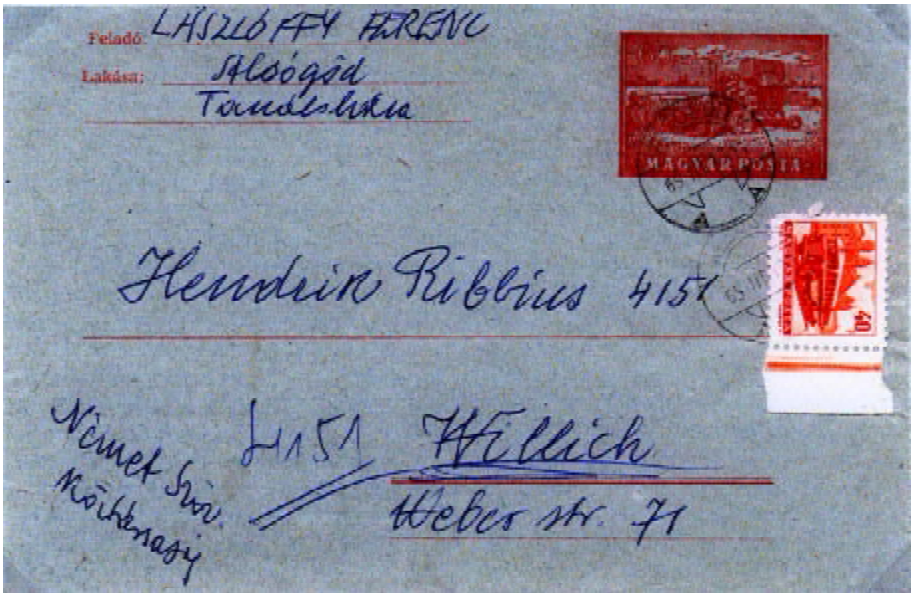 Feladó: LÁSZLÓFFY FERENC
Lakása: Alsógöd
Tanácsháza
MAGYAR POSTA
65
A
A
Hendrik Ribbius 4151
65
40
MAGYAR POSTA
Német Szöv.
Köztársaság
4151 Willich
Weber str. 71